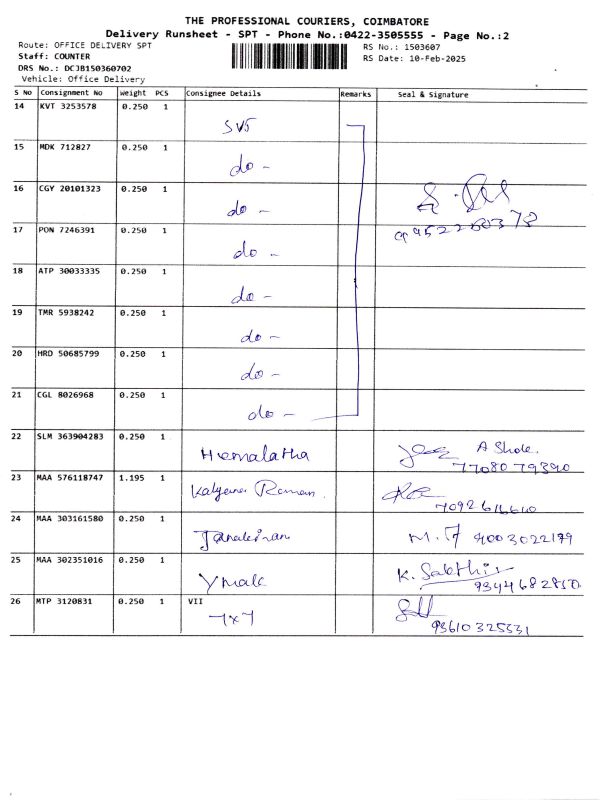 THE PROFESSIONAL COURIERS, COIMBATORE
Delivery Runsheet - SPT - Phone No.:0422-3505555 - Page No.:2
Route: OFFICE DELIVERY SPT
RS No.: 1503607
Staff: COUNTER
RS Date: 10-Feb-2025
DRS No.: DCJB150360702
Vehicle: Office Delivery
S No Consignment No Weight PCS Consignee Details Remarks Seal & Signature
14 KVT 3253578 0.250 1
SVS
15 MDK 712827 0.250 1
do -
16 CGY 20101323 0.250 1
do -
17 PON 7246391 0.250 1
do -
18 ATP 30033335 0.250 1
do -
19 TMR 5938242 0.250 1
do -
20 HRD 50685799 0.250 1
do -
21 CGL 8026968 0.250 1
do -
22 SLM 363904283 0.250 1
Hemalatha
7708079390
23 MAA 576118747 1.195 1
Kalyana Raman.
24 MAA 303161580 0.250 1
9003022179
25 MAA 302351016 0.250 1
K. Sakthi
9344682850
26 MTP 3120831 0.250 1 VII
7x7
93610325531